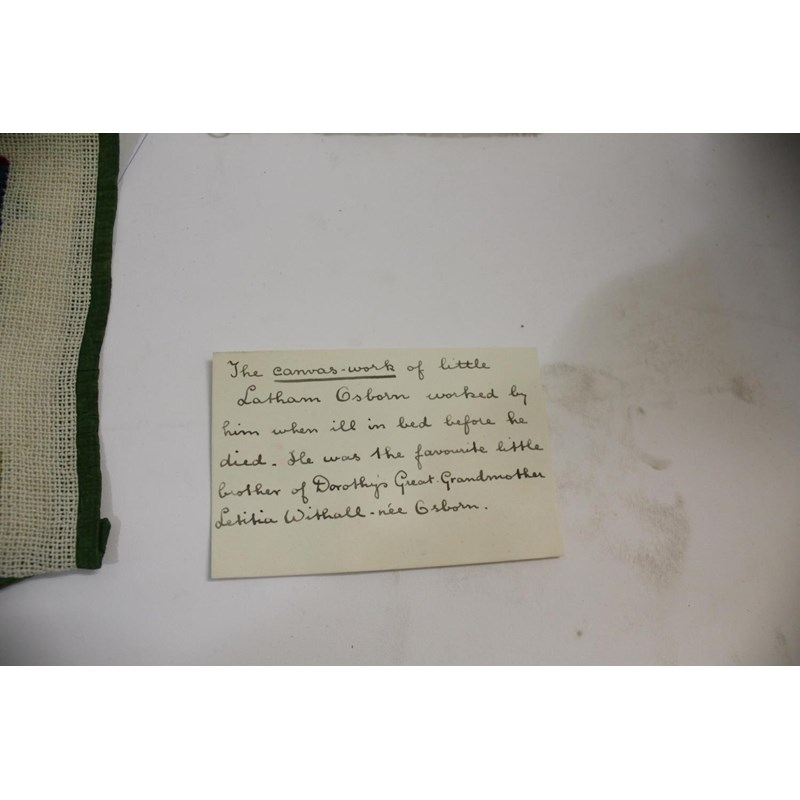 The canvas-work of little
Latham Osborn worked by
him when ill in bed before he
died. He was the favourite little
brother of Dorothy's Great-Grandmother
Letitia Withall - née Osborn.